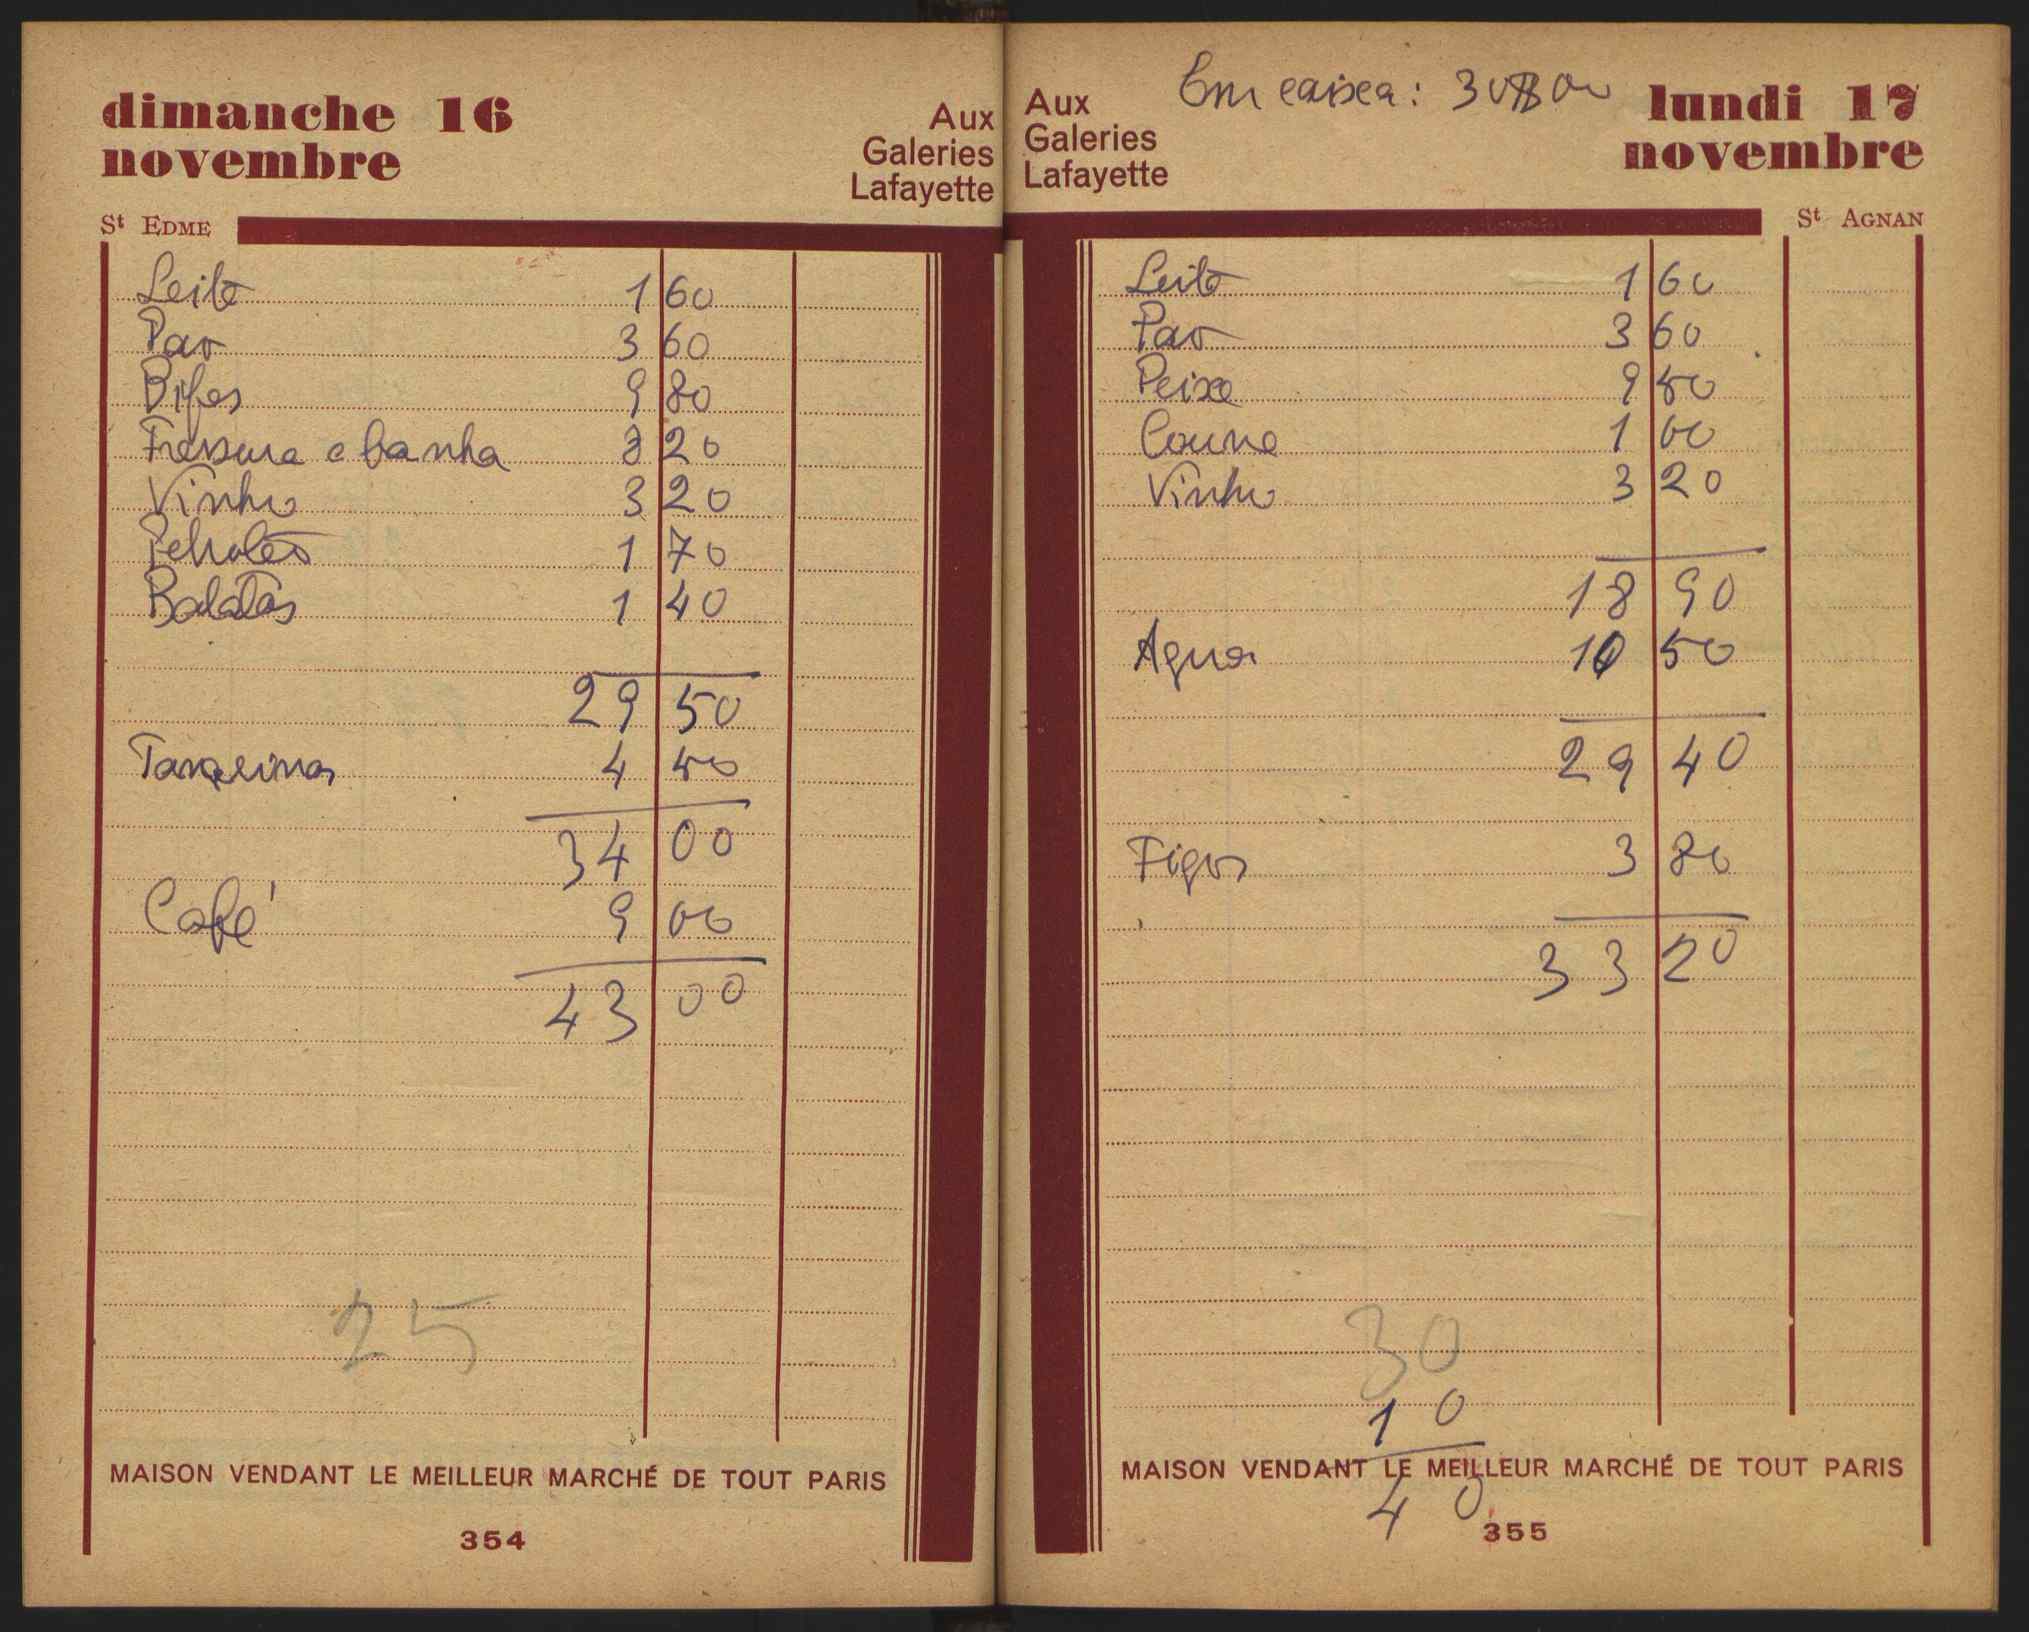 dimanche 16
novembre
Aux
Galeries
Lafayette
St EDME
Leite 1 60
Pao 3 60
Bifes 9 80
Fressura e banha 8 20
Vinho 3 20
Petroleo 1 70
Batatas 1 40
29 50
Tangerinas 4 50
34 00
Café 9 00
43 00
25
MAISON VENDANT LE MEILLEUR MARCHÉ DE TOUT PARIS
354
Aux
Galeries
Lafayette
Em caixa: 30$00
lundi 17
novembre
St AGNAN
Leite 1 60
Pao 3 60
Peixe 9 50
Couve 1 00
Vinho 3 20
18 90
Agua 10 50
29 40
Figos 3 80
33 20
30
10
MAISON VENDANT LE MEILLEUR MARCHÉ DE TOUT PARIS
40
355